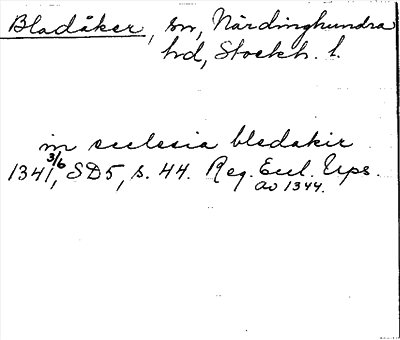 Bladåker, sn, Närdinghundra
hd, Stockh. l.
in ecclesia bledakir
1341 3/6, SD5, s. 44. Reg. Eccl. Ups.
av 1344.